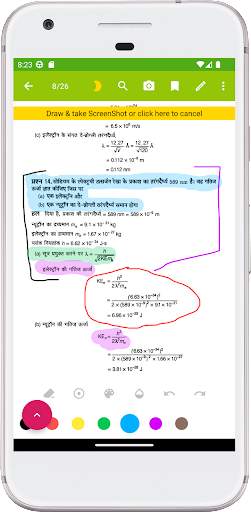 8:23
8/26
Draw & take ScreenShot or click here to cancel
= 6.5 × 10⁶ m/s
(c) इलेक्ट्रॉन के संगत दे-ब्रोग्ली तरंगदैर्ध्य,
λ = 12.27/√V Å = 12.27/√120 Å
= 0.112 × 10⁻⁹ m
= 0.112 nm
प्रश्न 14. सोडियम के स्पेक्ट्रमी उत्सर्जन रेखा के प्रकाश का तरंगदैर्ध्य 589 nm है। वह गतिज
ऊर्जा ज्ञात कीजिए जिस पर
(a) एक इलेक्ट्रॉन और
(b) एक न्यूट्रॉन का दे-ब्रोग्ली तरंगदैर्ध्य समान होगा।
हल दिया है, प्रकाश की तरंगदैर्ध्य = 589 nm = 589 × 10⁻⁹ m
न्यूट्रॉन का द्रव्यमान mₑ = 9.1 × 10⁻³¹ kg
इलेक्ट्रॉन का द्रव्यमान mₙ = 1.67 × 10⁻²⁷ kg
प्लांक नियतांक h = 6.62 × 10⁻³⁴ J-s
(a) सूत्र प्रयुक्त करने पर λ = h/√2KEmₑ
इलेक्ट्रॉन की गतिज ऊर्जा
KEₑ = h²/2λ²mₑ
= (6.63 × 10⁻³⁴)²/2 × (589 × 10⁻⁹)² × 9.1 × 10⁻³¹
= 6.96 × 10⁻²⁵ J
(b) न्यूट्रॉन की गतिज ऊर्जा
KEₙ = h²/2λ²mₙ
= (6.63 × 10⁻³⁴)²/2 × (589 × 10⁻⁹)² × 1.66 × 10⁻²⁷
= 3.81 × 10⁻²⁸ J